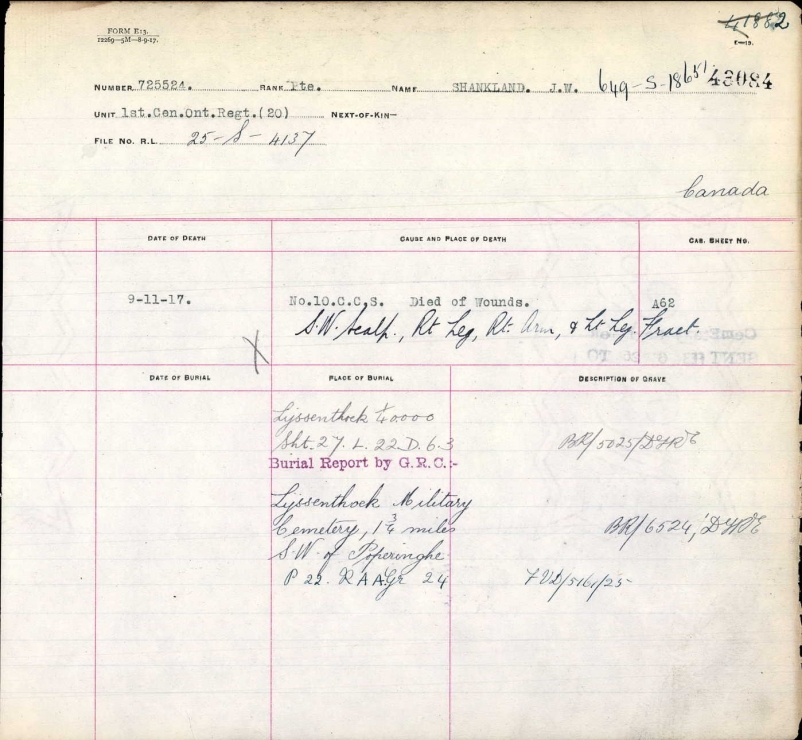 FORM E13.
12269—5M—8-9-17.
41882
E—19.
NUMBER 725524. RANK Pte. NAME SHANKLAND. J.W. 649-S-18651 43084
UNIT 1st.Cen.Ont.Regt.(20) NEXT-OF-KIN—
FILE No. R.L. 25-S-4137
Canada
DATE OF DEATH CAUSE AND PLACE OF DEATH CAS. SHEET No.
9-11-17. No.10.C.C,S. Died of Wounds. A62
S.W. Scalp., Rt Leg, Rt. Arm, & Lt Leg. Fract.
X
DATE OF BURIAL PLACE OF BURIAL DESCRIPTION OF GRAVE
Lijssenthoek 1/40000
Sht. 27. L. 22. D. 6.3 BR/5025/
Burial Report by G.R.C.:-
Lijssenthoek Military
Cemetery, 1 3/4 miles BR/6524,
S.W. of Poperinghe
P 22. R AA. Gr 24
SENT TO